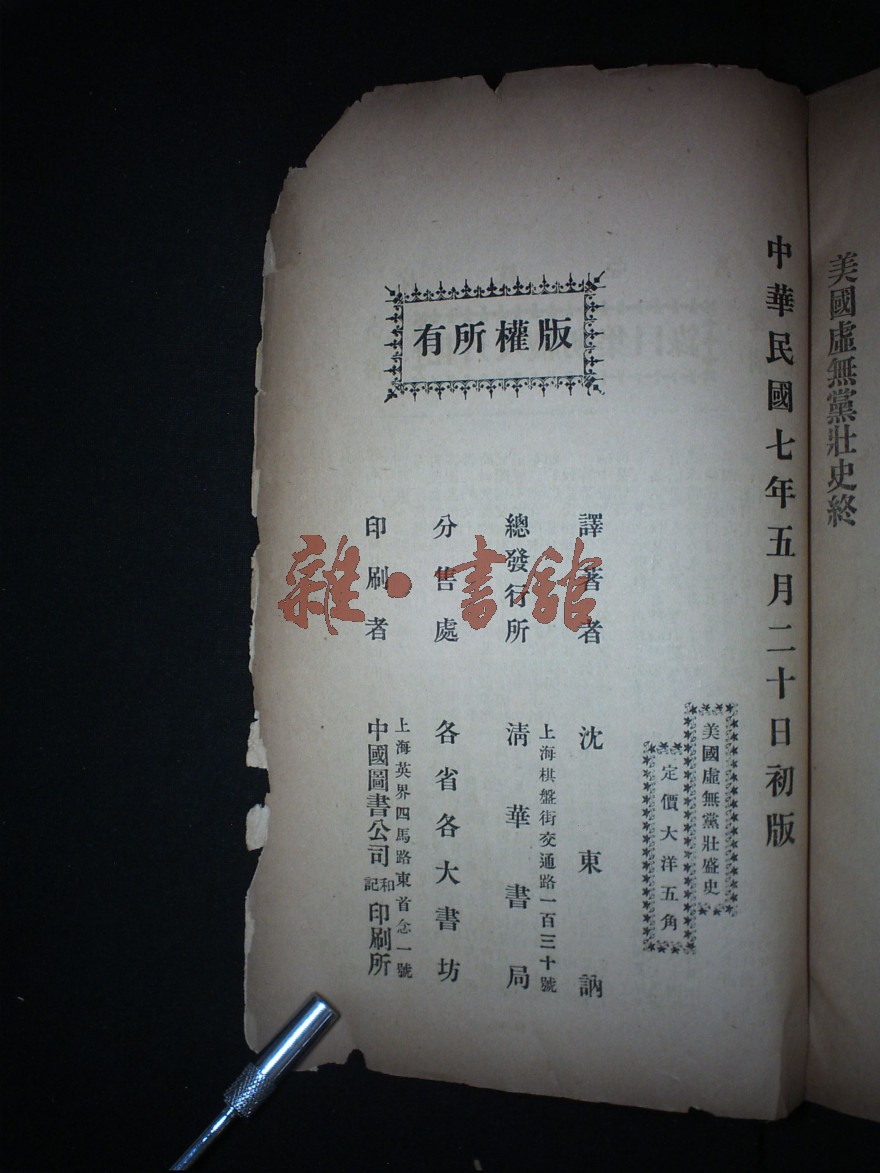 美國虛無黨壯史終
中華民國七年五月二十日初版
美國虛無黨壯盛史
定價大洋五角
版權所有
譯著者 沈東訥
總發行所 上海棋盤街交通路一百三十號
清華書局
分售處 各省各大書坊
印刷者 上海英界四馬路東首念一號
中國圖書公司和記印刷所
雜·書館